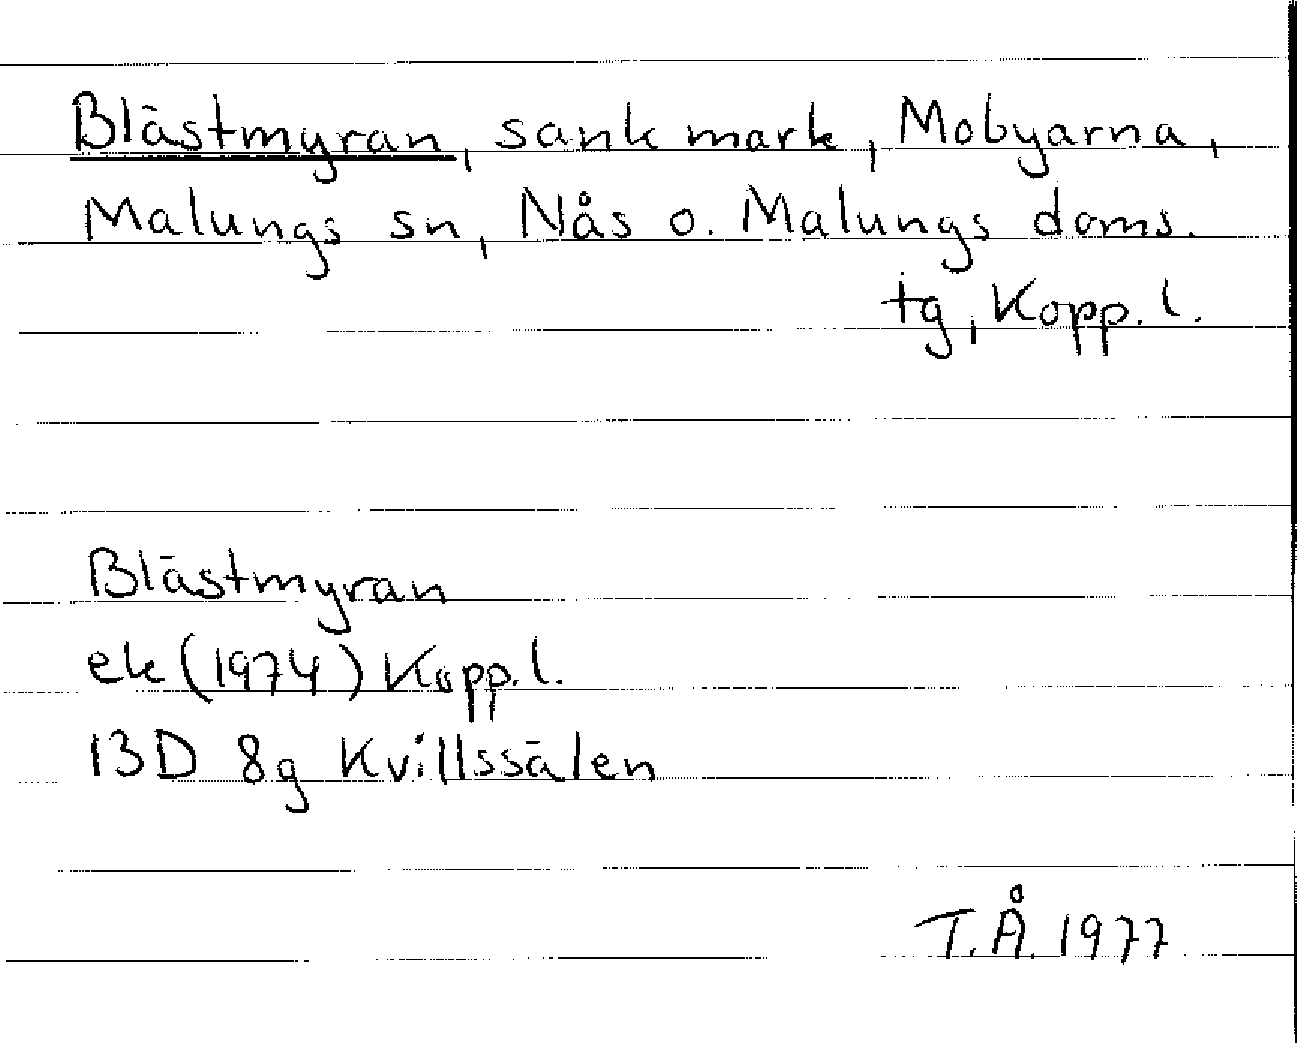 Blästmyran, sank mark, Mobyarna,
Malungs sn, Nås o. Malungs doms.
tg, Kopp. l.
Blästmyran
ek (1974) Kopp. l.
13D 8g Kvillssälen
T.Å. 1977